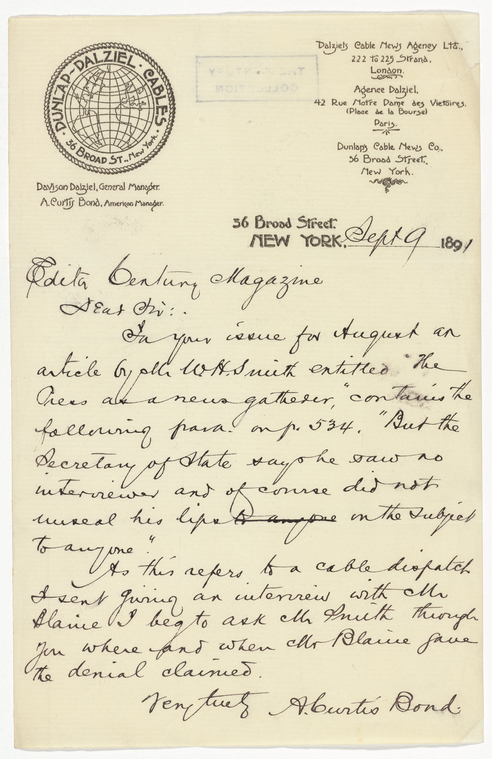 DUNLAP-DALZIEL-CABLES
56 BROAD ST., New York.
Davison Dalziel, General Manager.
A. Curtis Bond, American Manager.
THE CENTURY
COLLECTION
Dalziels Cable News Agency Ltd.,
222 to 225 Strand,
London.
Agence Dalziel,
42 Rue Notre Dame des Victoires.
(Place de la Bourse)
Paris.
Dunlaps Cable News Co.,
56 Broad Street,
New York.
56 Broad Street.
NEW YORK, Sept 9 1891
Editor Century Magazine
Dear Sir:
In your issue for August an
article by Mr W. H. Smith entitled "The
Press as a news gatherer," contains the
following para. on p. 534. "But the
Secretary of State says he saw no
interviewer and of course did not
unseal his lips to anyone on the subject
to anyone."
As this refers to a cable dispatch
I sent giving an interview with Mr
Blaine I beg to ask Mr Smith through
you where and when Mr Blaine gave
the denial claimed.
Very truly A. Curtis Bond.